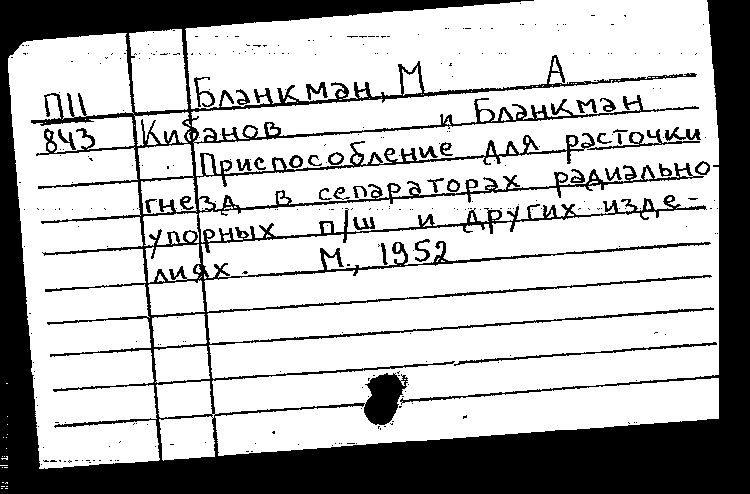 Бланкман, М А
ПII
843 Кибанов и Бланкман
Приспособление для расточки
гнезд в сепараторах радиально-
упорных п/ш и других изде-
лиях. М., 1952